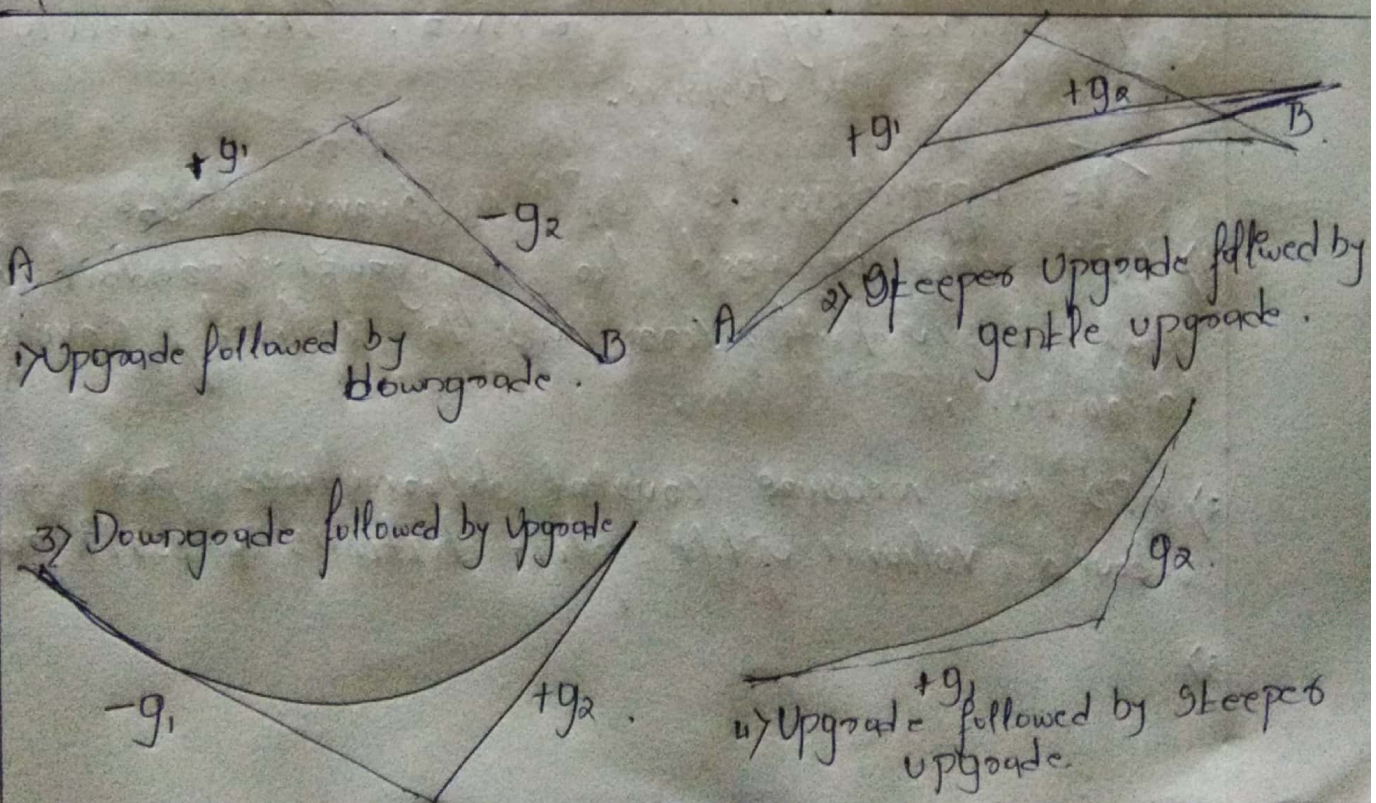 +g₁
-g₂
A
B
1) Upgrade followed by
downgrade.
+g₁
+g₂
B
A
2) Steeper Upgrade follwed by
gentle upgrade.
3) Downgrade followed by Upgrade
-g₁
+g₂.
g₂.
+g₁
4) Upgrade followed by steeper
upgrade.